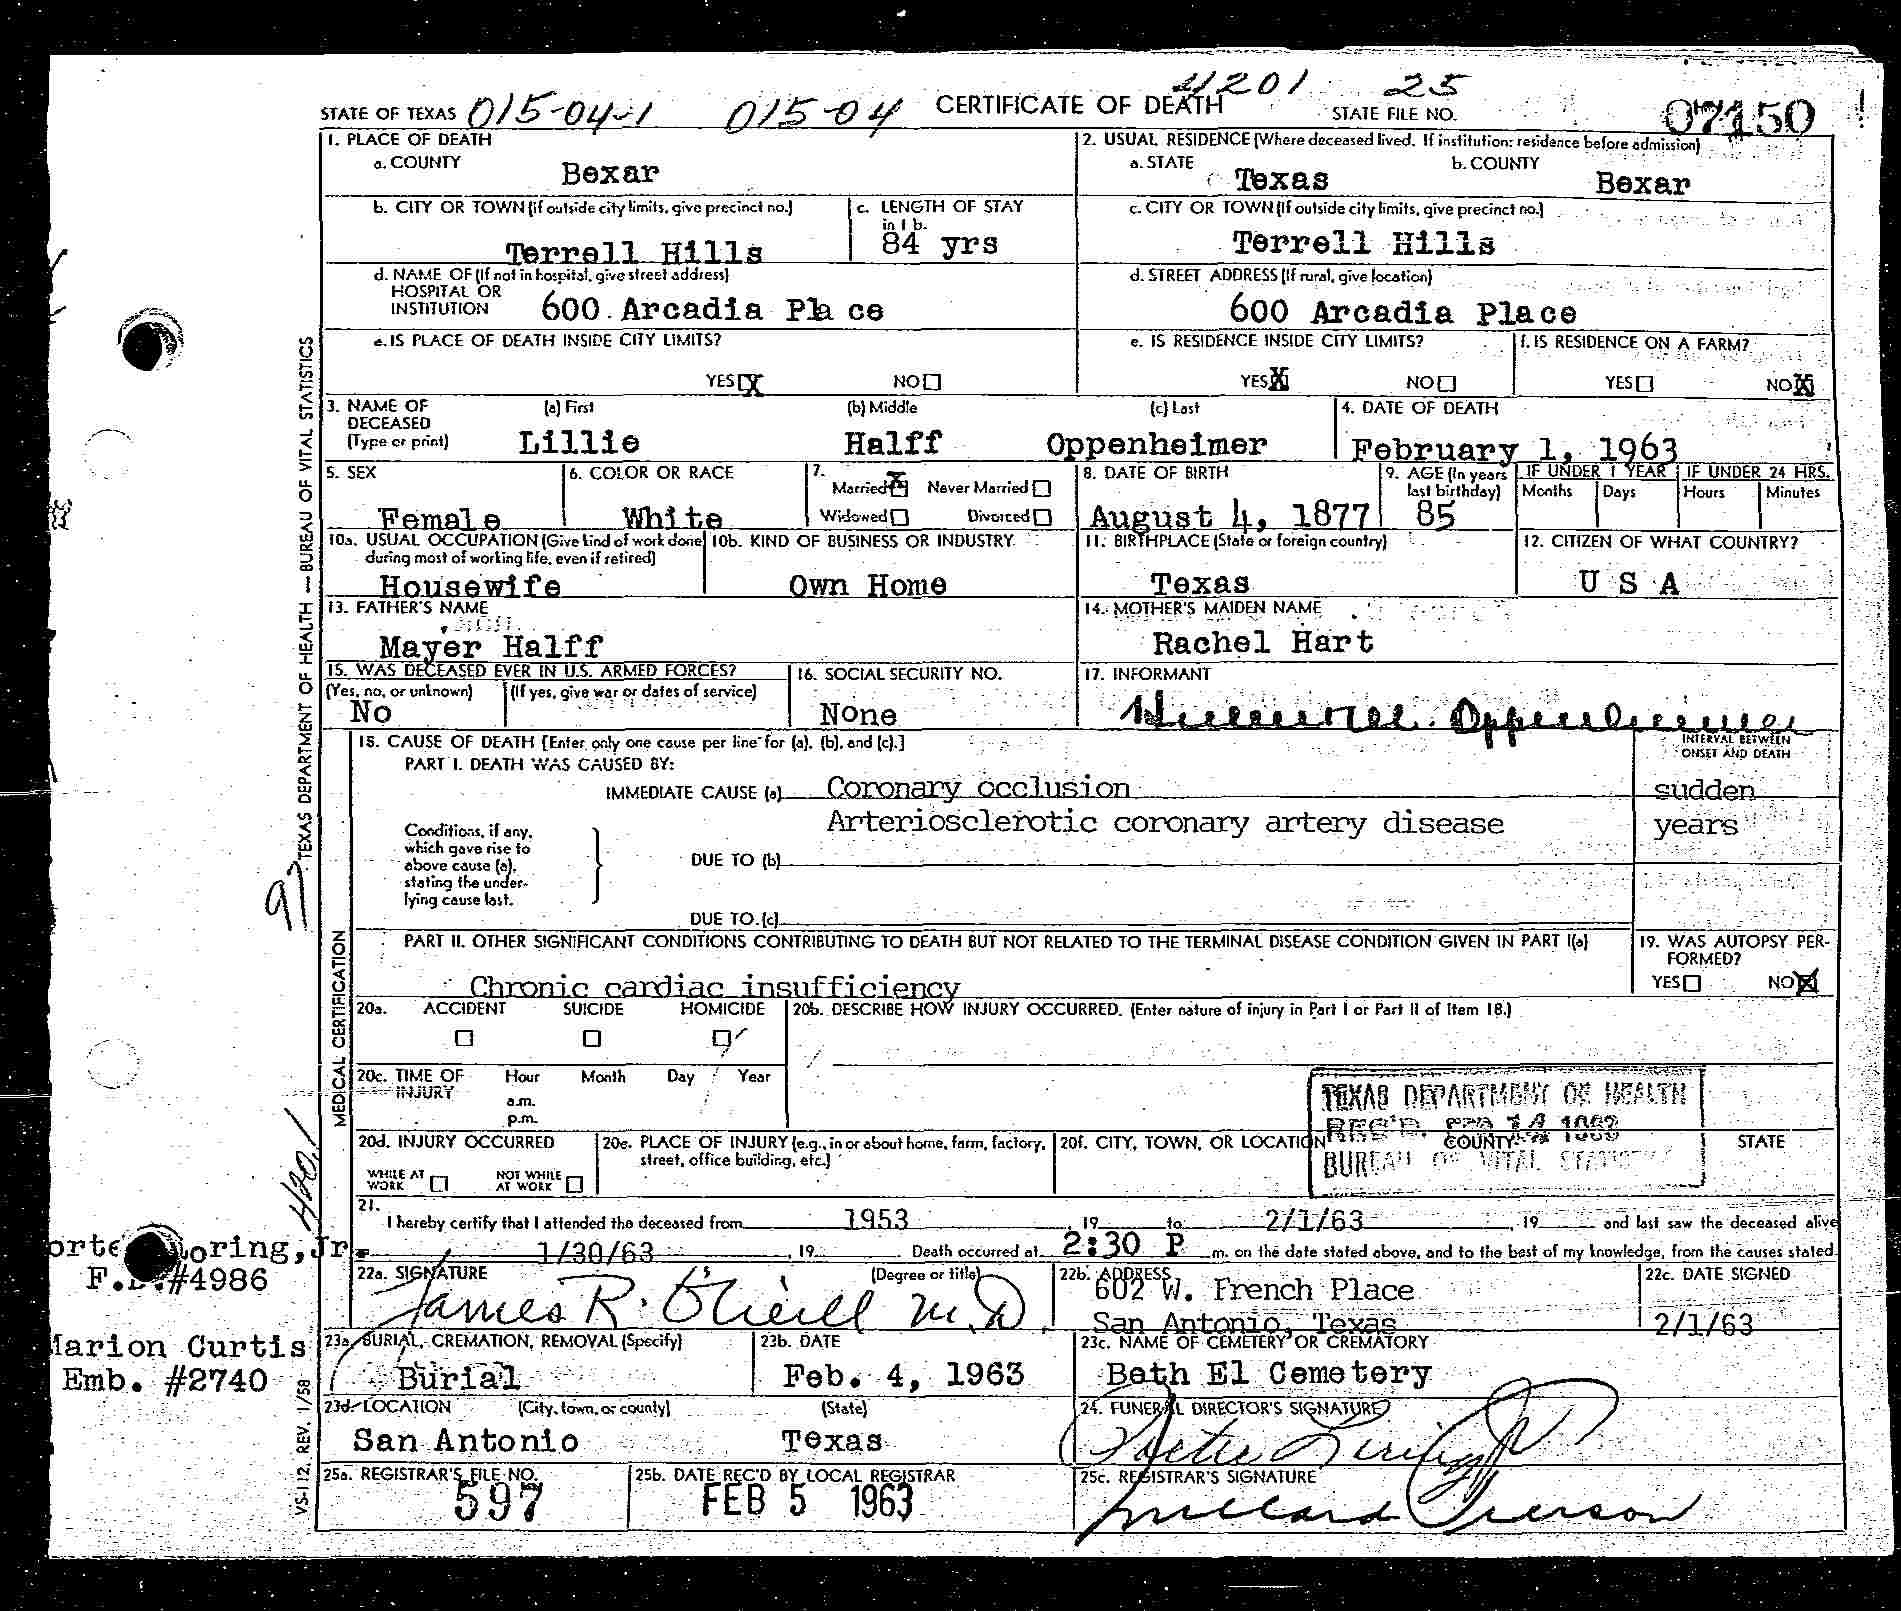 4201 25
STATE OF TEXAS 015-04-1 015-04 CERTIFICATE OF DEATH STATE FILE NO. 07150
1. PLACE OF DEATH
a. COUNTY
Bexar
2. USUAL RESIDENCE (Where deceased lived. If institution: residence before admission)
a. STATE b. COUNTY
Texas Bexar
b. CITY OR TOWN (if outside city limits, give precinct no.)
Terrell Hills
c. LENGTH OF STAY
in 1 b.
84 yrs
c. CITY OR TOWN (If outside city limits, give precinct no.)
Terrell Hills
d. NAME OF (If not in hospital, give street address)
HOSPITAL OR
INSTITUTION 600 Arcadia Pla ce
d. STREET ADDRESS (If rural, give location)
600 Arcadia Place
e. IS PLACE OF DEATH INSIDE CITY LIMITS?
YES X NO
e. IS RESIDENCE INSIDE CITY LIMITS?
YES X NO
f. IS RESIDENCE ON A FARM?
YES NO X
3. NAME OF
DECEASED
(Type or print)
(a) First (b) Middle (c) Last
Lillie Halff Oppenheimer
4. DATE OF DEATH
February 1, 1963
5. SEX
Female
6. COLOR OR RACE
White
7.
Married X Never Married
Widowed Divorced
8. DATE OF BIRTH
August 4, 1877
9. AGE (In years
last birthday)
85
IF UNDER 1 YEAR
Months Days
IF UNDER 24 HRS.
Hours Minutes
10a. USUAL OCCUPATION (Give kind of work done
during most of working life, even if retired)
Housewife
10b. KIND OF BUSINESS OR INDUSTRY
Own Home
11. BIRTHPLACE (State or foreign country)
Texas
12. CITIZEN OF WHAT COUNTRY?
U S A
13. FATHER'S NAME
Mayer Halff
14. MOTHER'S MAIDEN NAME
Rachel Hart
15. WAS DECEASED EVER IN U.S. ARMED FORCES?
(Yes, no, or unknown) (If yes, give war or dates of service)
No
16. SOCIAL SECURITY NO.
None
17. INFORMANT
Oppenheimer
18. CAUSE OF DEATH [Enter only one cause per line for (a), (b), and (c).]
PART I. DEATH WAS CAUSED BY:
INTERVAL BETWEEN
ONSET AND DEATH
IMMEDIATE CAUSE (a) Coronary occlusion sudden
Arteriosclerotic coronary artery disease years
Conditions, if any,
which gave rise to
above cause (a),
stating the under-
lying cause last.
DUE TO (b)
DUE TO (c)
PART II. OTHER SIGNIFICANT CONDITIONS CONTRIBUTING TO DEATH BUT NOT RELATED TO THE TERMINAL DISEASE CONDITION GIVEN IN PART I(a)
Chronic cardiac insufficiency
19. WAS AUTOPSY PER-
FORMED?
YES NO X
20a. ACCIDENT SUICIDE HOMICIDE
20b. DESCRIBE HOW INJURY OCCURRED. (Enter nature of injury in Part I or Part II of Item 18.)
20c. TIME OF
INJURY
Hour Month Day Year
a.m.
p.m.
TEXAS DEPARTMENT OF HEALTH
REC'D. FEB 14 1963
BUREAU OF VITAL STATISTICS
20d. INJURY OCCURRED
WHILE AT
WORK
NOT WHILE
AT WORK
20e. PLACE OF INJURY (e.g., in or about home, farm, factory,
street, office building, etc.)
20f. CITY, TOWN, OR LOCATION COUNTY STATE
21.
I hereby certify that I attended the deceased from 1953, 19 to 2/1/63, 19 and last saw the deceased alive
1/30/63, 19 Death occurred at 2:30 P m. on the date stated above, and to the best of my knowledge, from the causes stated.
22a. SIGNATURE (Degree or title)
James R. O'Neill M.D.
22b. ADDRESS
602 W. French Place
San Antonio, Texas
22c. DATE SIGNED
2/1/63
23a. BURIAL, CREMATION, REMOVAL (Specify)
Burial
23b. DATE
Feb. 4, 1963
23c. NAME OF CEMETERY OR CREMATORY
Beth El Cemetery
23d. LOCATION (City, town, or county) (State)
San Antonio Texas
24. FUNERAL DIRECTOR'S SIGNATURE
Porter Loring Jr
25a. REGISTRAR'S FILE NO.
597
25b. DATE REC'D BY LOCAL REGISTRAR
FEB 5 1963
25c. REGISTRAR'S SIGNATURE
TEXAS DEPARTMENT OF HEALTH — BUREAU OF VITAL STATISTICS
MEDICAL CERTIFICATION
97
420.1
orte oring, Jr
F.D.#4986
Marion Curtis
Emb. #2740
VS-112, REV. 1/58